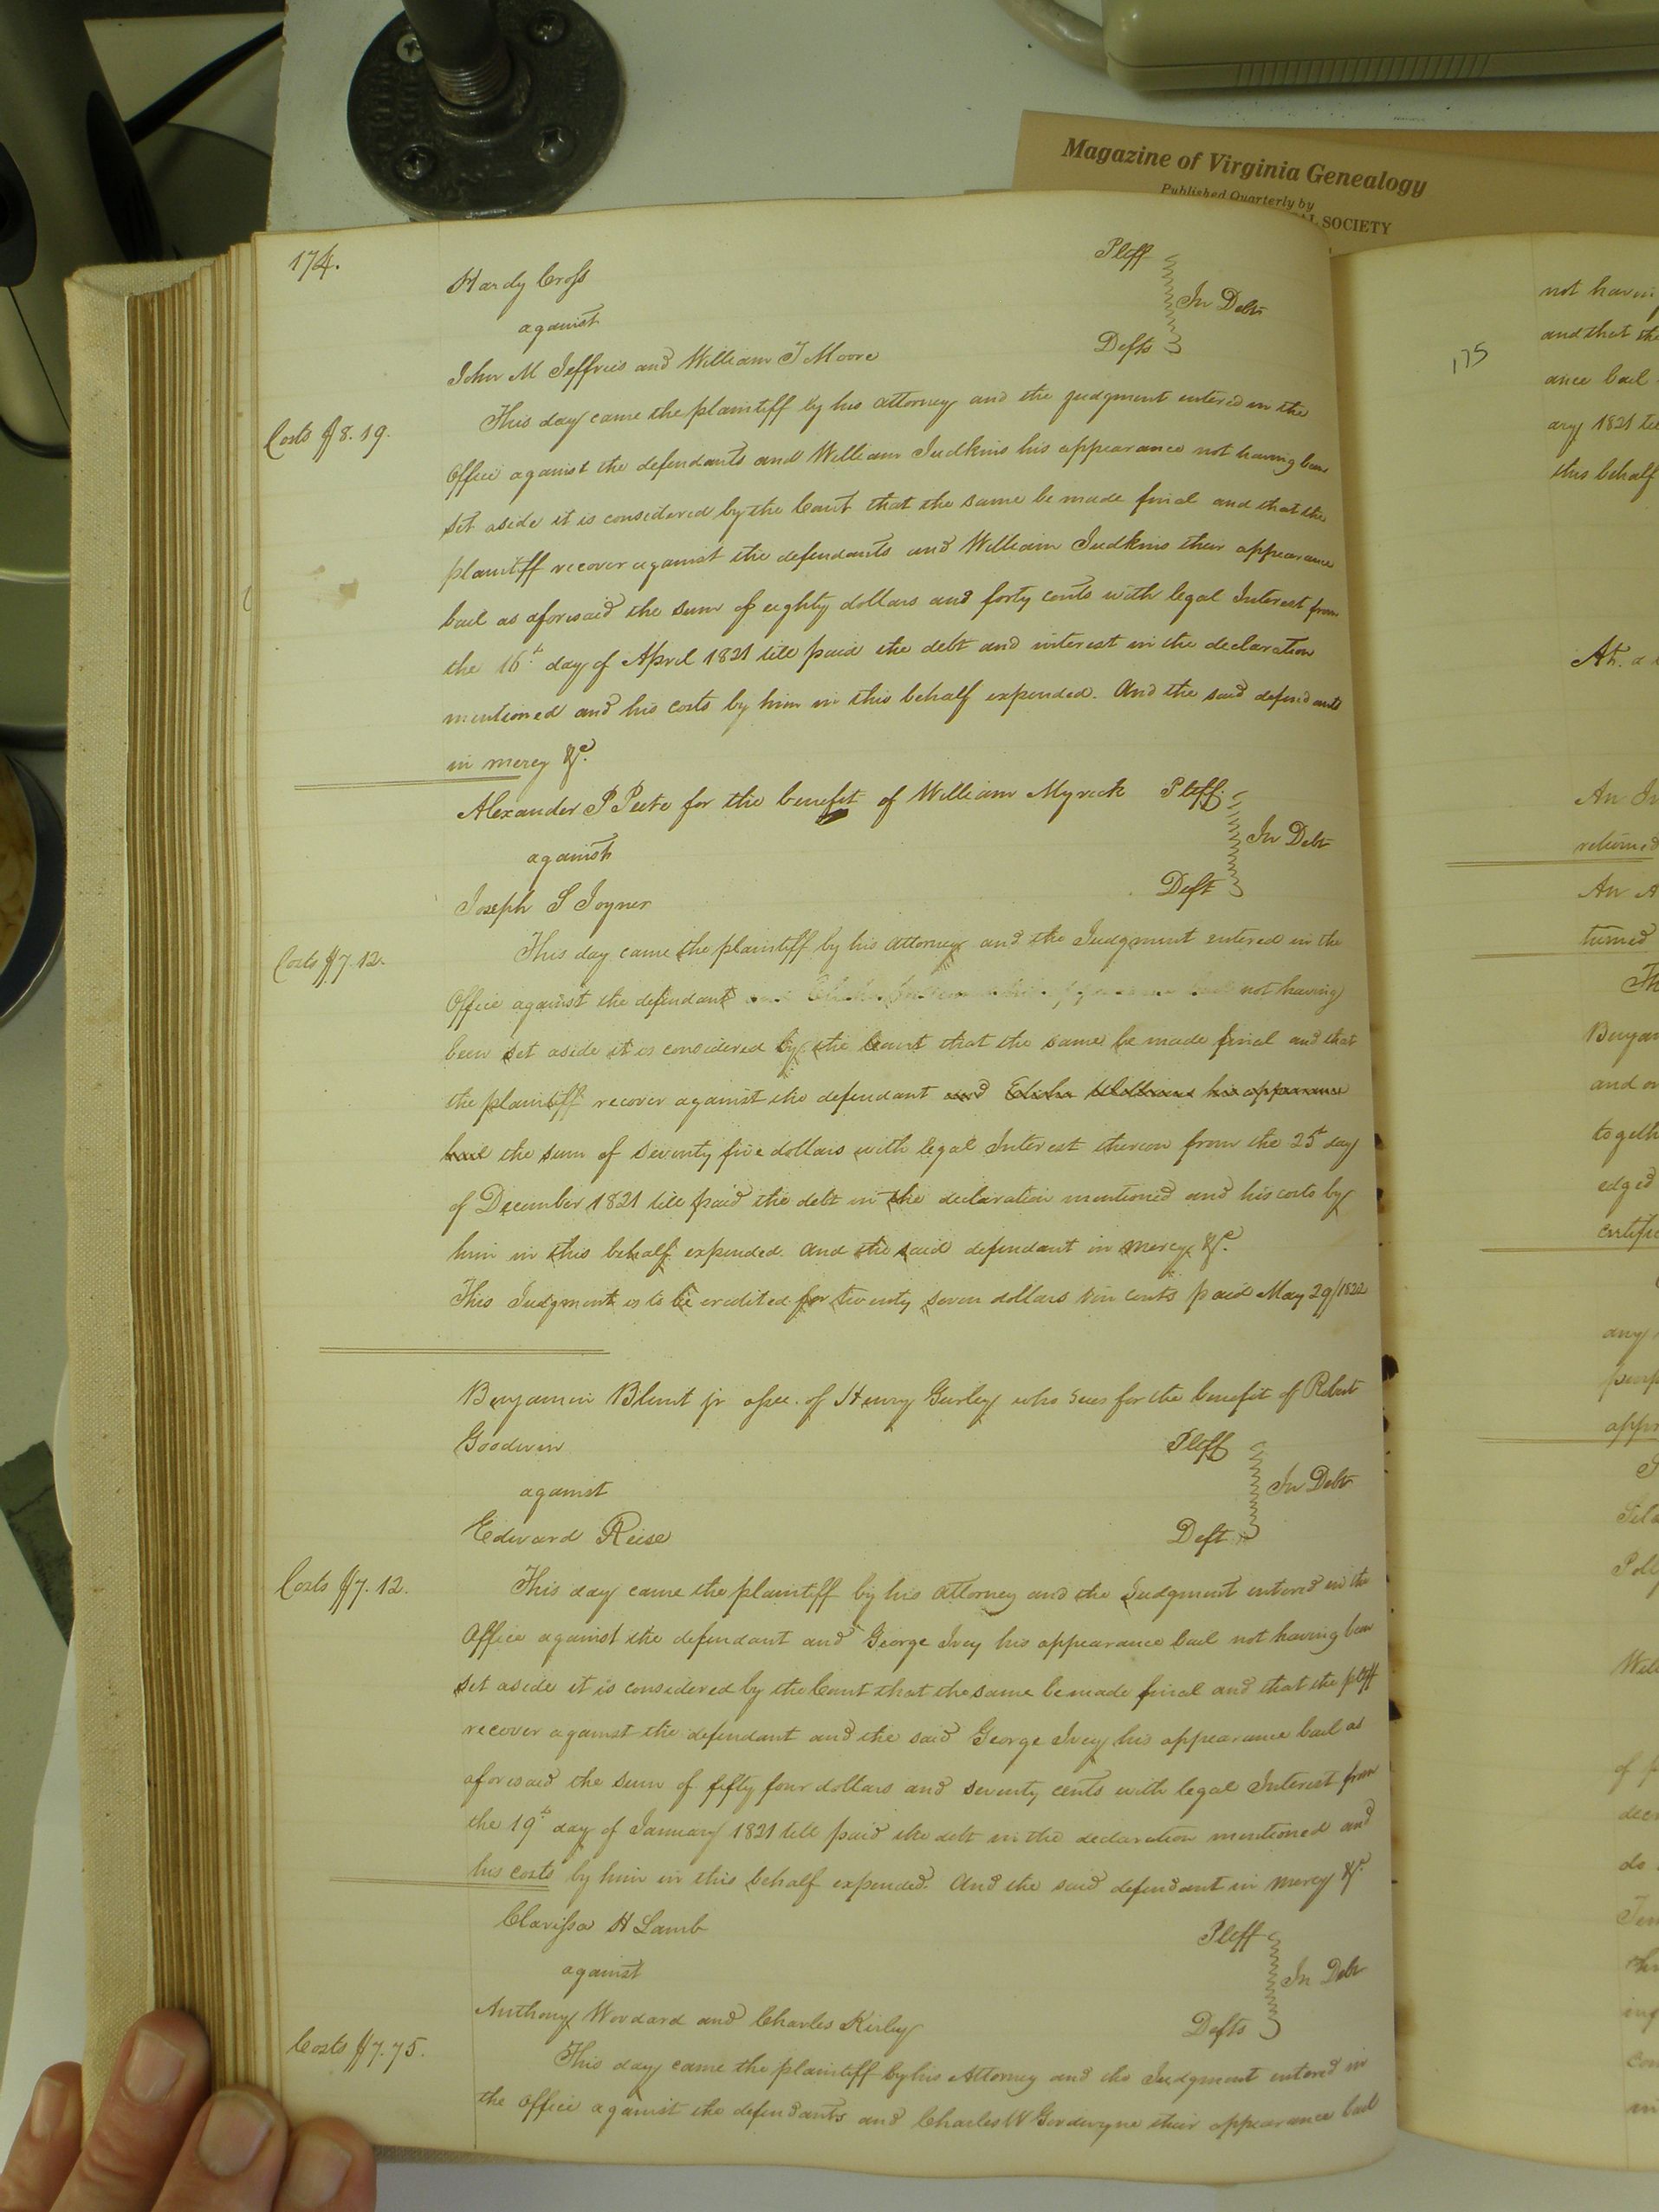 Magazine of Virginia Genealogy
Published Quarterly by
SOCIETY
174.
Hardy Cross Pltff
against In Debt
John M Jeffries and William T Moore Defts
Costs $8.19.
This day came the plaintiff by his attorney and the judgment entered in the
Office against the defendants and William Judkins his appearance not having been
set aside it is considered by the Court that the same be made final and that the
plaintiff recover against the defendants and William Judkins their appearance
bail as aforesaid the sum of eighty dollars and forty cents with legal Interest from
the 16th day of April 1821 till paid the debt and interest in the declaration
mentioned and his costs by him in this behalf expended. And the said defendants
in mercy &c.
Alexander P Peete for the benefit of William Myrick Pltff
against In Debt
Joseph S Joyner Deft
Costs $7.12.
This day came the plaintiff by his attorney and the Judgment entered in the
Office against the defendant not having
been set aside it is considered by the Court that the same be made final and that
the plaintiff recover against the defendant and Elisha Williams his appearance
bail the sum of seventy five dollars with legal Interest thereon from the 25th day
of December 1821 till paid the debt in the declaration mentioned and his costs by
him in this behalf expended. And the said defendant in mercy &c.
This Judgment is to be credited for twenty seven dollars ten cents paid May 29/1822
Benjamin Blunt jr of Henry Gurley who sues for the benefit of Robert
Goodwin Pltff
against In Debt
Edward Reise Deft
Costs $7.12.
This day came the plaintiff by his attorney and the Judgment entered in the
Office against the defendant and George Ivey his appearance bail not having been
set aside it is considered by the Court that the same be made final and that the pltff
recover against the defendant and the said George Ivey his appearance bail as
aforesaid the sum of fifty four dollars and seventy cents with legal Interest from
the 19th day of January 1821 till paid the debt in the declaration mentioned and
his costs by him in this behalf expended. And the said defendant in mercy &c.
Clarissa H Lamb Pltff
against In Debt
Anthony Woodard and Charles Kirley Defts
Costs $7.75.
This day came the plaintiff by his Attorney and the Judgment entered in
the Office against the defendants and Charles W Gordwyne their appearance bail
175
not having
and that the
ance bail
ary 1821 till
this behalf
At. a
An In
returned
An A
turned
Th
and on
togeth
edged
certifi
any
appr
Poll
of
do